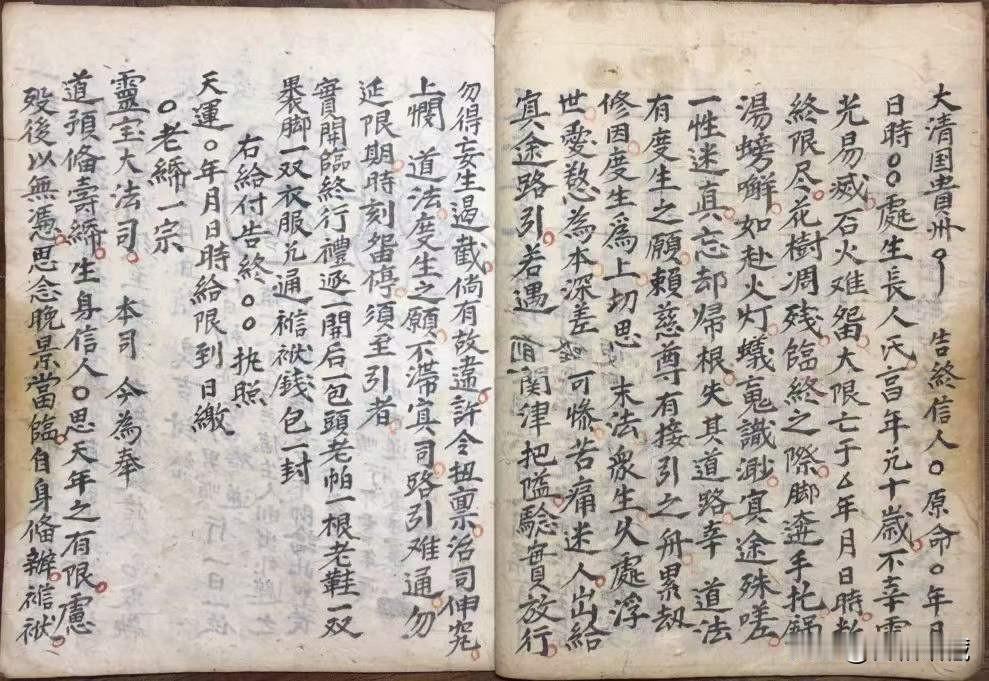 大清国貴州 告終信人〇原命〇年月
日時〇〇處生長人氏宫年兄十歲不幸電
光易威石火难畱大限亡于乙年月日時数
終限尽花樹凋残臨終之際脚遴手扥鍋
湯螃蠏如赴火灯蟻䰟識渺㝠途殊嗟
一性迷真忘却帰根失其道路幸 道法
有度生之願賴慈尊有接引之舟累刼
修因度生爲上切思 末法衆生久處浮
世愛慾為本深差 可惨苦痛迷人出給
㝠途路引若遇 関津把隘驗實放行
勿得妄生遏截倘有故違許令扭禀治司伸究
上憫 道法度生之願不滞㝠司路引难通勿
延限期時刻畱停須至引者
實開臨終行禮逐一開后一包頭老帕一根老鞋一双
裹脚一双衣服兄通襘袱錢包一封
右給付告終〇〇执照
天運〇年月日時給限到日繳
〇老締一宗
靈宝大法司 本司 今為奉
道預俻壽締生身信人〇思天年之有限慮
殁後以無憑思念晚景當臨自身俻辦襘袱